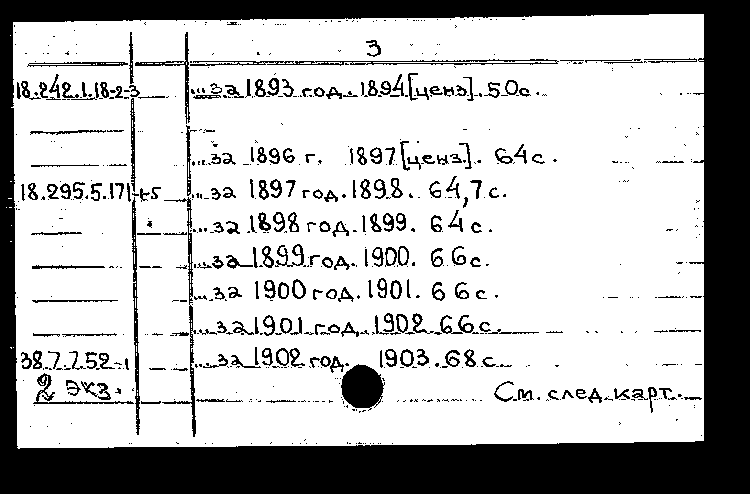 3
18.242.1.18-2-3 ...за 1893 год. 1894 [ценз]. 50с.
...за 1896 г. 1897 [ценз.]. 64с.
18.295.5.171 ...за 1897 год. 1898. 64,7с.
...за 1898 год. 1899. 64с.
...за 1899 год. 1900. 66с.
...за 1900 год. 1901. 66с.
...за 1901 год. 1902. 66с.
38.7.752-1 ...за 1902 год. 1903. 68с.
2 экз. См. след. карт.